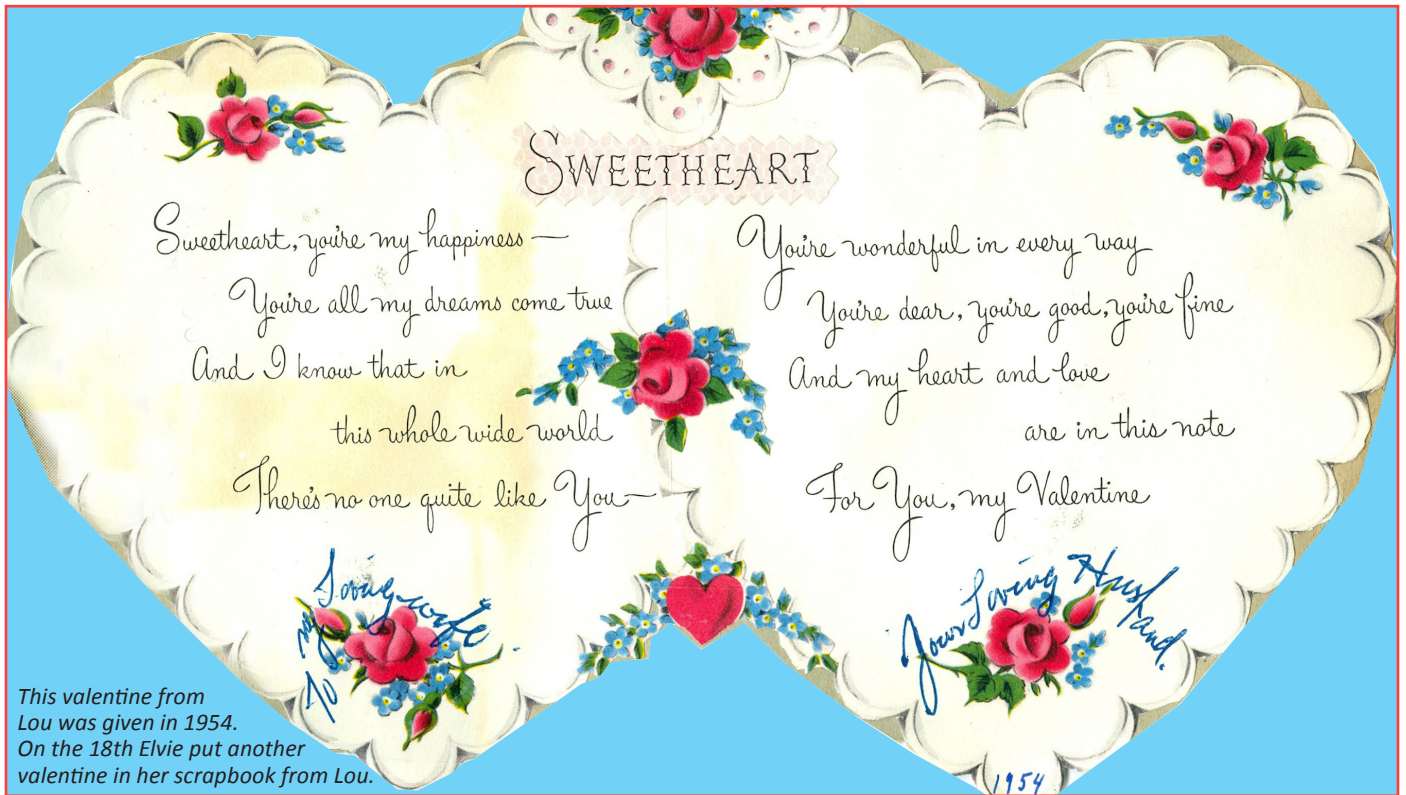 SWEETHEART
Sweetheart, you're my happiness —
You're all my dreams come true
And I know that in
this whole wide world
There's no one quite like You—
You're wonderful in every way
You're dear, you're good, you're fine
And my heart and love
are in this note
For You, my Valentine
To my Loving wife.
Your Loving Husband.
1954
This valentine from
Lou was given in 1954.
On the 18th Elvie put another
valentine in her scrapbook from Lou.